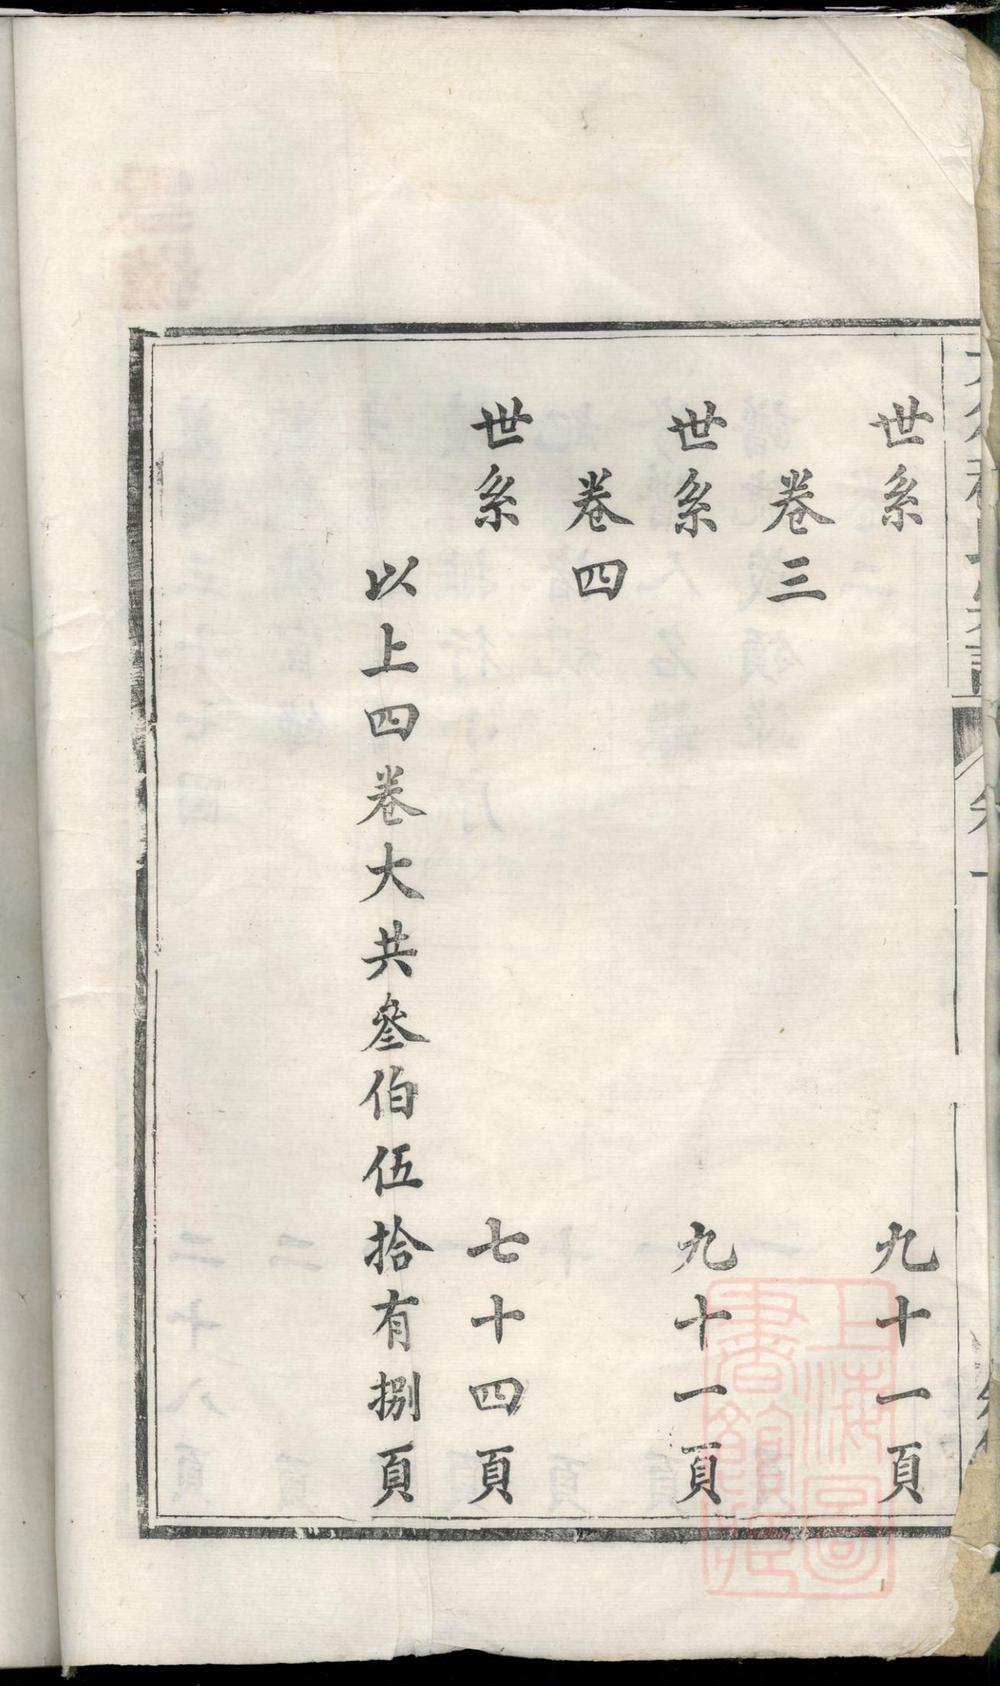 世系 九十一頁
卷三
世系 九十一頁
卷四
世系 七十四頁
以上四卷大共叄伯伍拾有捌頁
上海圖書館藏